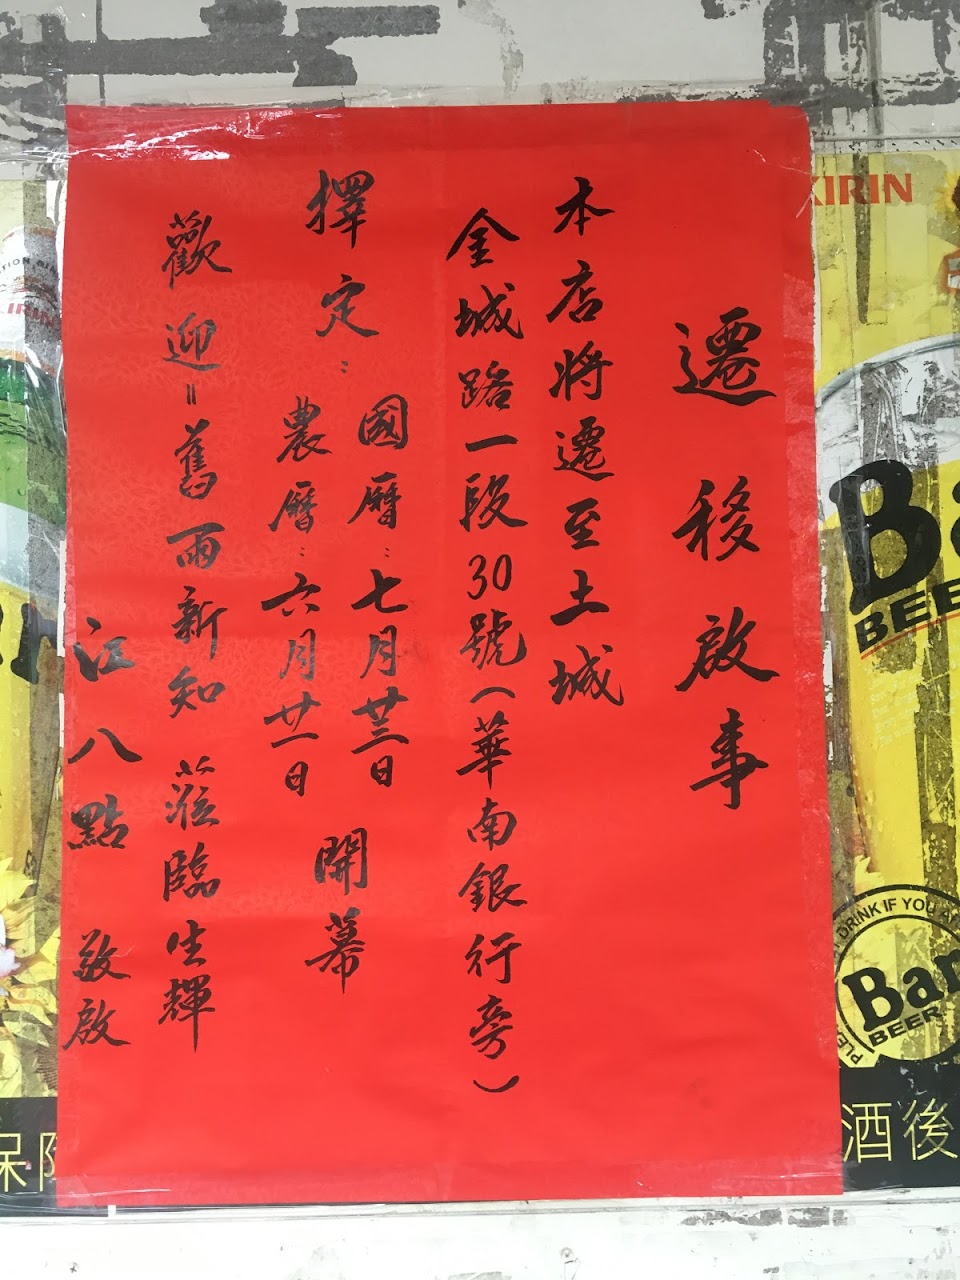 遷移啟事
本店將遷至土城
金城路一段30號(華南銀行旁)
擇定：
國曆：七月廿三日
農曆：六月廿一日
開幕
歡迎=舊雨新知 蒞臨生輝
江八點 敬啟
KIRIN
Bar
BEER
DRINK IF YOU
Bar
BEER
酒後